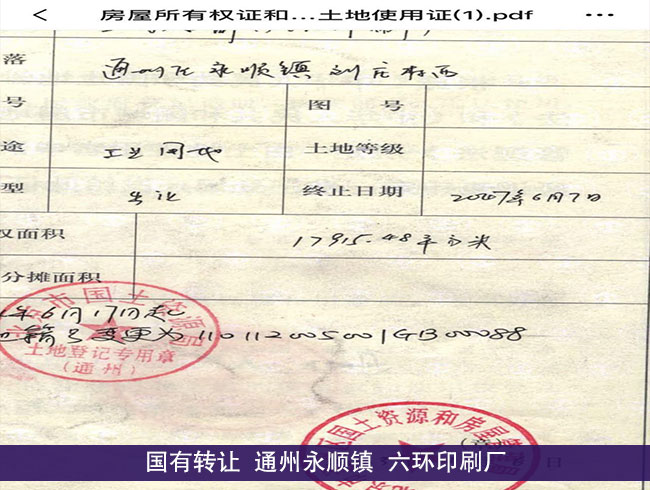 房屋所有权证和...土地使用证(1).pdf
落 通州区永顺镇刘庄村西
号 图 号
途 工业用地 土地等级
型 出让 终止日期 2047年6月7日
权面积 17915.48平方米
分摊面积
年6月17日起
籍号变更为110112005001GB00088
市国土资源局
土地登记专用章
(通州)
国土资源和房屋
国有转让 通州永顺镇 六环印刷厂
日